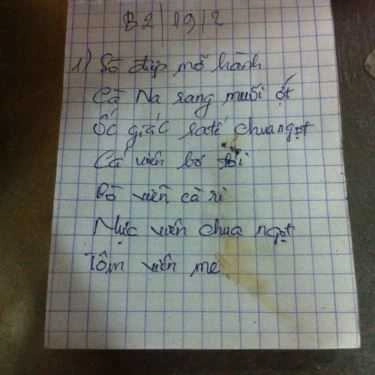 B2/19/2
1) Sò điệp mỡ hành
Cà Na rang muối ớt
Ốc giác satế chua ngọt
Cá viên bó xôi
Bò viên cà ri
Mực viên chua ngọt
Tôm viên me